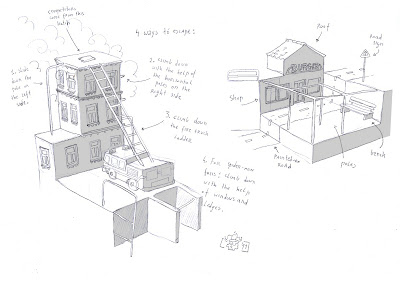 4 ways to escape
somewhere
comes from this
hatch
1. Slide
down the
pole on
the left
side.
2. climb down
with the help of
the horizontal
poles on the
right side
3. climb down
the fire truck
ladder.
4. For spider-man
fans: climb down
with the help
of windows and
ledges.
Roof
Road
sign
BURGER
shop
pedestrian
road
poles
bench